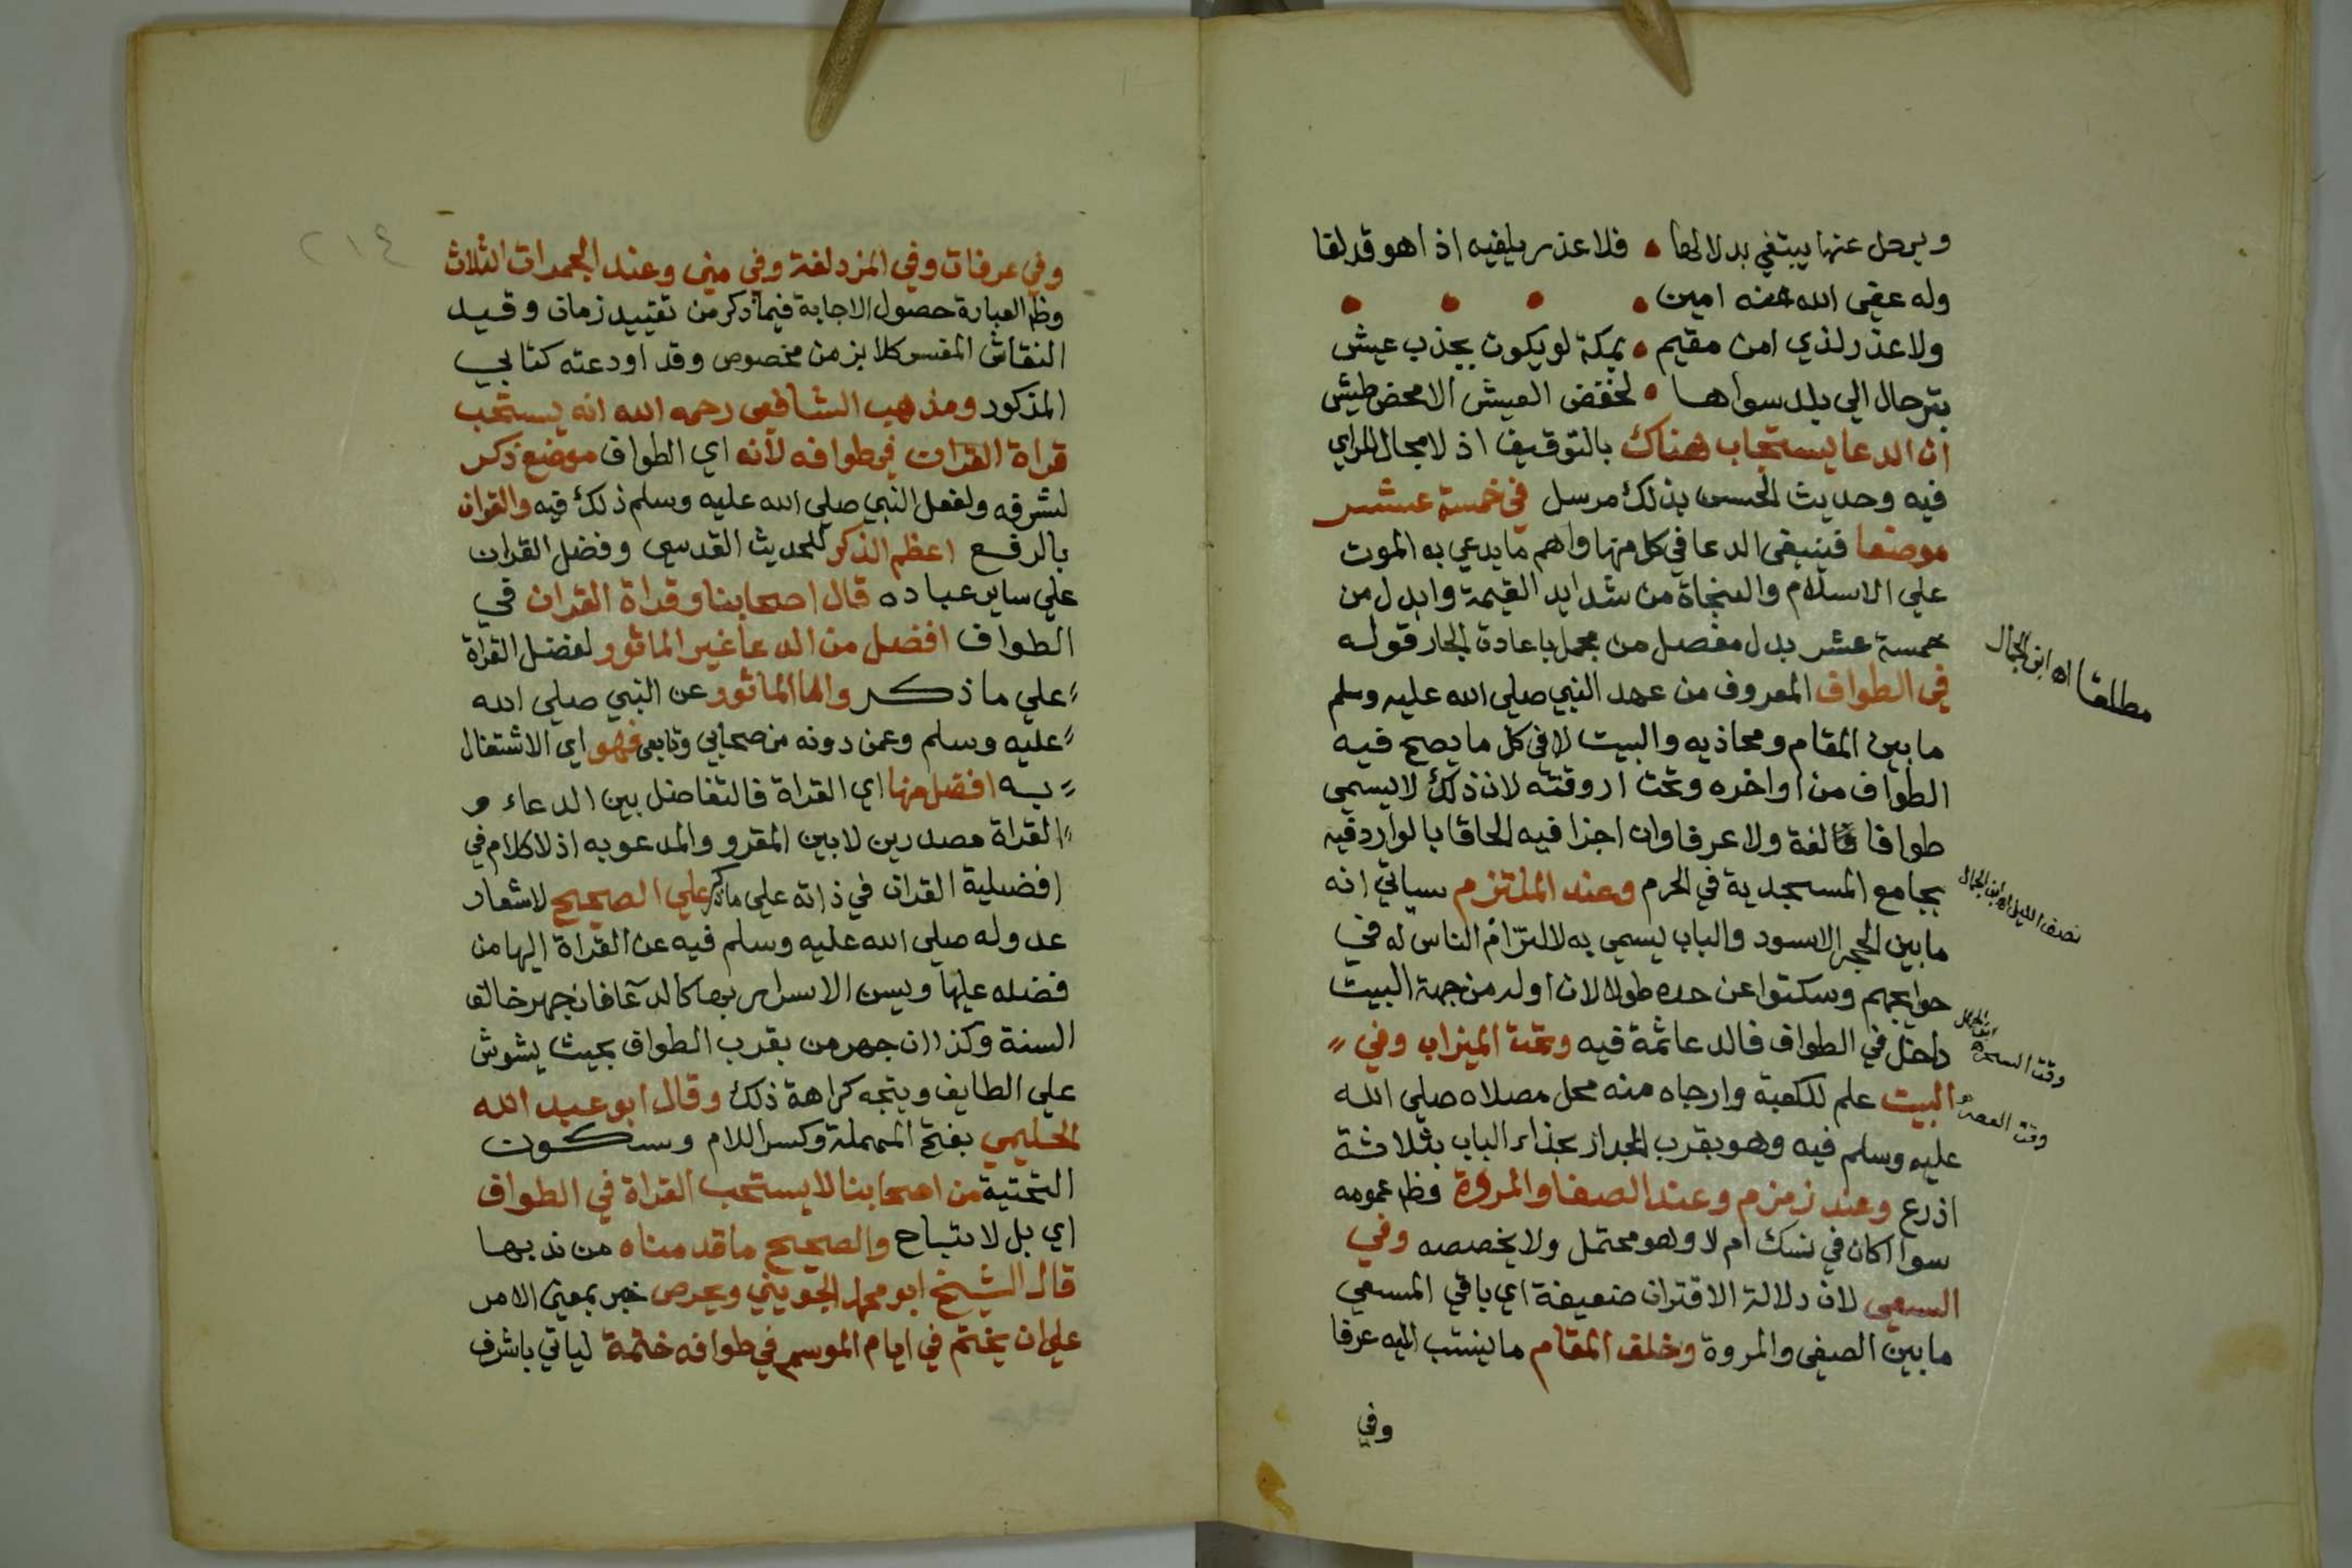 ويرحل عنها يبتغي بدلا لها • فلا عذر يلفيه اذا هو قد لقا
وله عفى الله عنه امين •
ولا عذر لذي امن مقيم • بمكة لو يكون بجذب عيش
بترحال الي بلد سواها • لخفض العيش الا محض طيش
ان الدعا يستجاب هناك بالتوقيف اذ لا مجال للراي
فيه وحديث الحسن بذلك مرسل في خمسة عشر
موضعا فينبغى الدعا في كل منها واهم ما يدعي به الموت
علي الاسلام والنجاة من شدايد القيمة وابدل من
خمسة عشر بدل مفصل من مجمل باعادة الجار قوله
في الطواف المعروف من عهد النبي صلي الله عليه وسلم
ما بين المقام ومحاذيه والبيت لا في كل ما يصح فيه
الطواف من اواخره وتحت اروقته لان ذلك لا يسمى
طوافا لغة ولا عرفا وان اجزا فيه الحاقا بالوارد فيه
بجامع المسجدية في الحرم وعند الملتزم سياتي انه
ما بين الحجر الاسود والباب يسمى به لالتزام الناس له في
حوايجهم وسكتوا عن حده طولا لان اوله من جهة البيت
داخل في الطواف فالدعا ثمة فيه وتحت الميزاب وفي
البيت علم للكعبة وارجاه منه محل مصلاه صلي الله
عليه وسلم فيه وهو بقرب الجدار بحذاء الباب بثلاثة
اذرع وعند زمزم وعند الصفا والمروة وظ عمومه
سوا اكان في نسك ام لا وهو محتمل ولا يخصصه وفي
السعى لان دلالة الاقتران ضعيفة اي باقي المسعي
ما بين الصفى والمروة وخلف المقام ما ينسب اليه عرفا
وفي
مطلقا اه ابن الجمال
نصف الليل اه ابن الجمال
وقت السحر اه ابن الجمال
وقت العصر
٢١٤
وفي عرفات وفي المزدلفة وفي منى وعند الجمرات الثلاث
وظ العبارة حصول الاجابة فيما ذكر من تقييد زمان وقيد
النقاش المفسر كلا بزمن مخصوص وقد اودعته كتابي
المذكور ومذهب الشافعي رحمه الله انه يستحب
قراة القران في طوافه لانه اي الطواف موضع ذكر
لشرفه ولفعل النبي صلي الله عليه وسلم ذلك فيه والقران
بالرفع اعظم الذكر للحديث القدسي وفضل القران
علي ساير عباده قال اصحابنا وقراة القران في
الطواف افضل من الدعا غير الماثور لفضل القراة
علي ما ذكر واما الماثور عن النبي صلي الله
عليه وسلم وعمن دونه من صحابي وتابعى فهو اي الاشتغال
به افضل منها اي القراة فالتفاضل بين الدعاء و
القراة مصدرين لا بين المقرو والمدعو به اذ لا كلام في
افضلية القران في ذاته علي ما ذكر علي الصحيح لاشعار
عدوله صلي الله عليه وسلم فيه عن القراة اليها من
فضله عليها ويسن الاسرار بها كالدعا فان جهر خالف
السنة وكذا ان جهر من بقرب الطواف بحيث يشوش
علي الطايف ويتجه كراهة ذلك وقال ابو عبد الله
الحليمي بفتح المهملة وكسر اللام وسكون
التحتية من اصحابنا لا يستحب القراة في الطواف
اي بل لا تباح والصحيح ما قدمناه من ندبها
قال الشيخ ابو محمد الجويني ويحرص خبر بمعنى الامر
علي ان يختم في ايام الموسم في طوافه ختمة لياتي باشرف